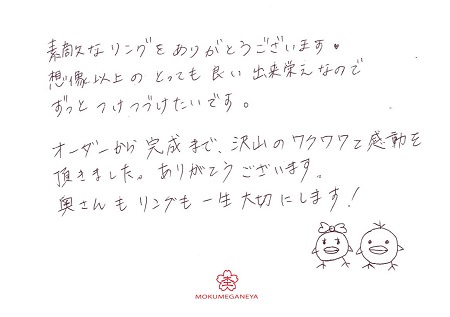 素敵なリングをありがとうございます♥
想像以上のとっても良い出来栄えなので
ずっとつけつづけたいです。
オーダーから完成まで、沢山のワクワクと感動を
頂きました。ありがとうございます。
奥さんもリングも一生大切にします！
MOKUMEGANEYA